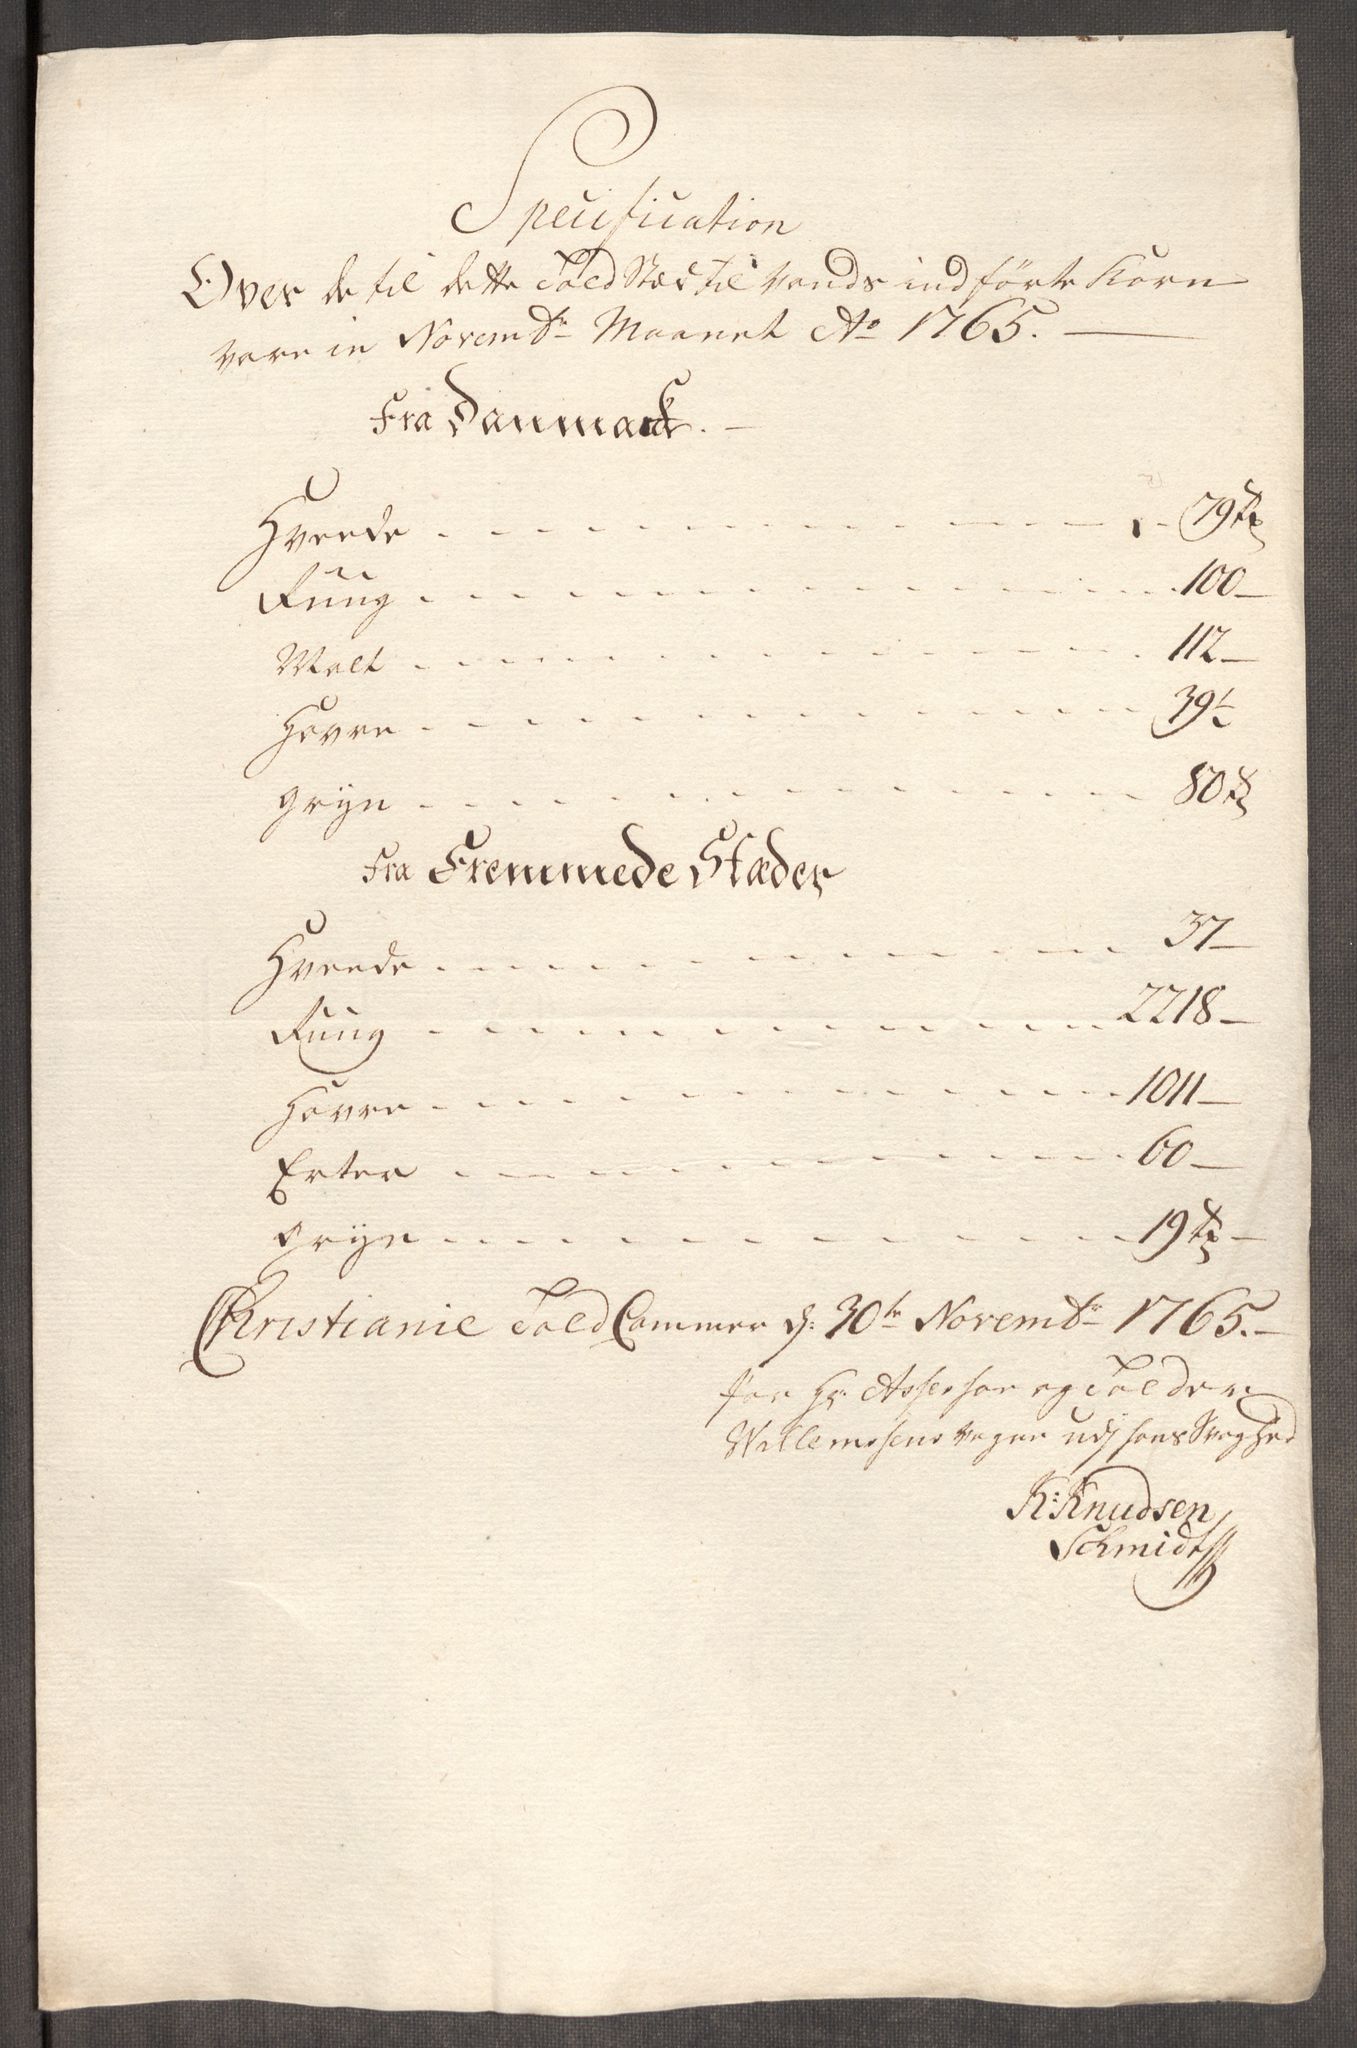 Specification
Over de til dette Told Stæd til Vands indførte Korn
vare in Novembr Maanet Ao 1765.
Fra Danmarck.
Hveede 79 tr
Ruug 100
Malt 112
Havre 39½
Gryn 80 tr
Fra Fremmede Stæder
Hveede 37
Ruug 2218
Havre 1011
Erter 60
Gryn 19 tr
Christianie Told Cammer d: 30te Novembr 1765.
for Hr: Assessor og Tolder
Willemsens vegne udj hans Svaghed
K: Knudsen
Schmidt